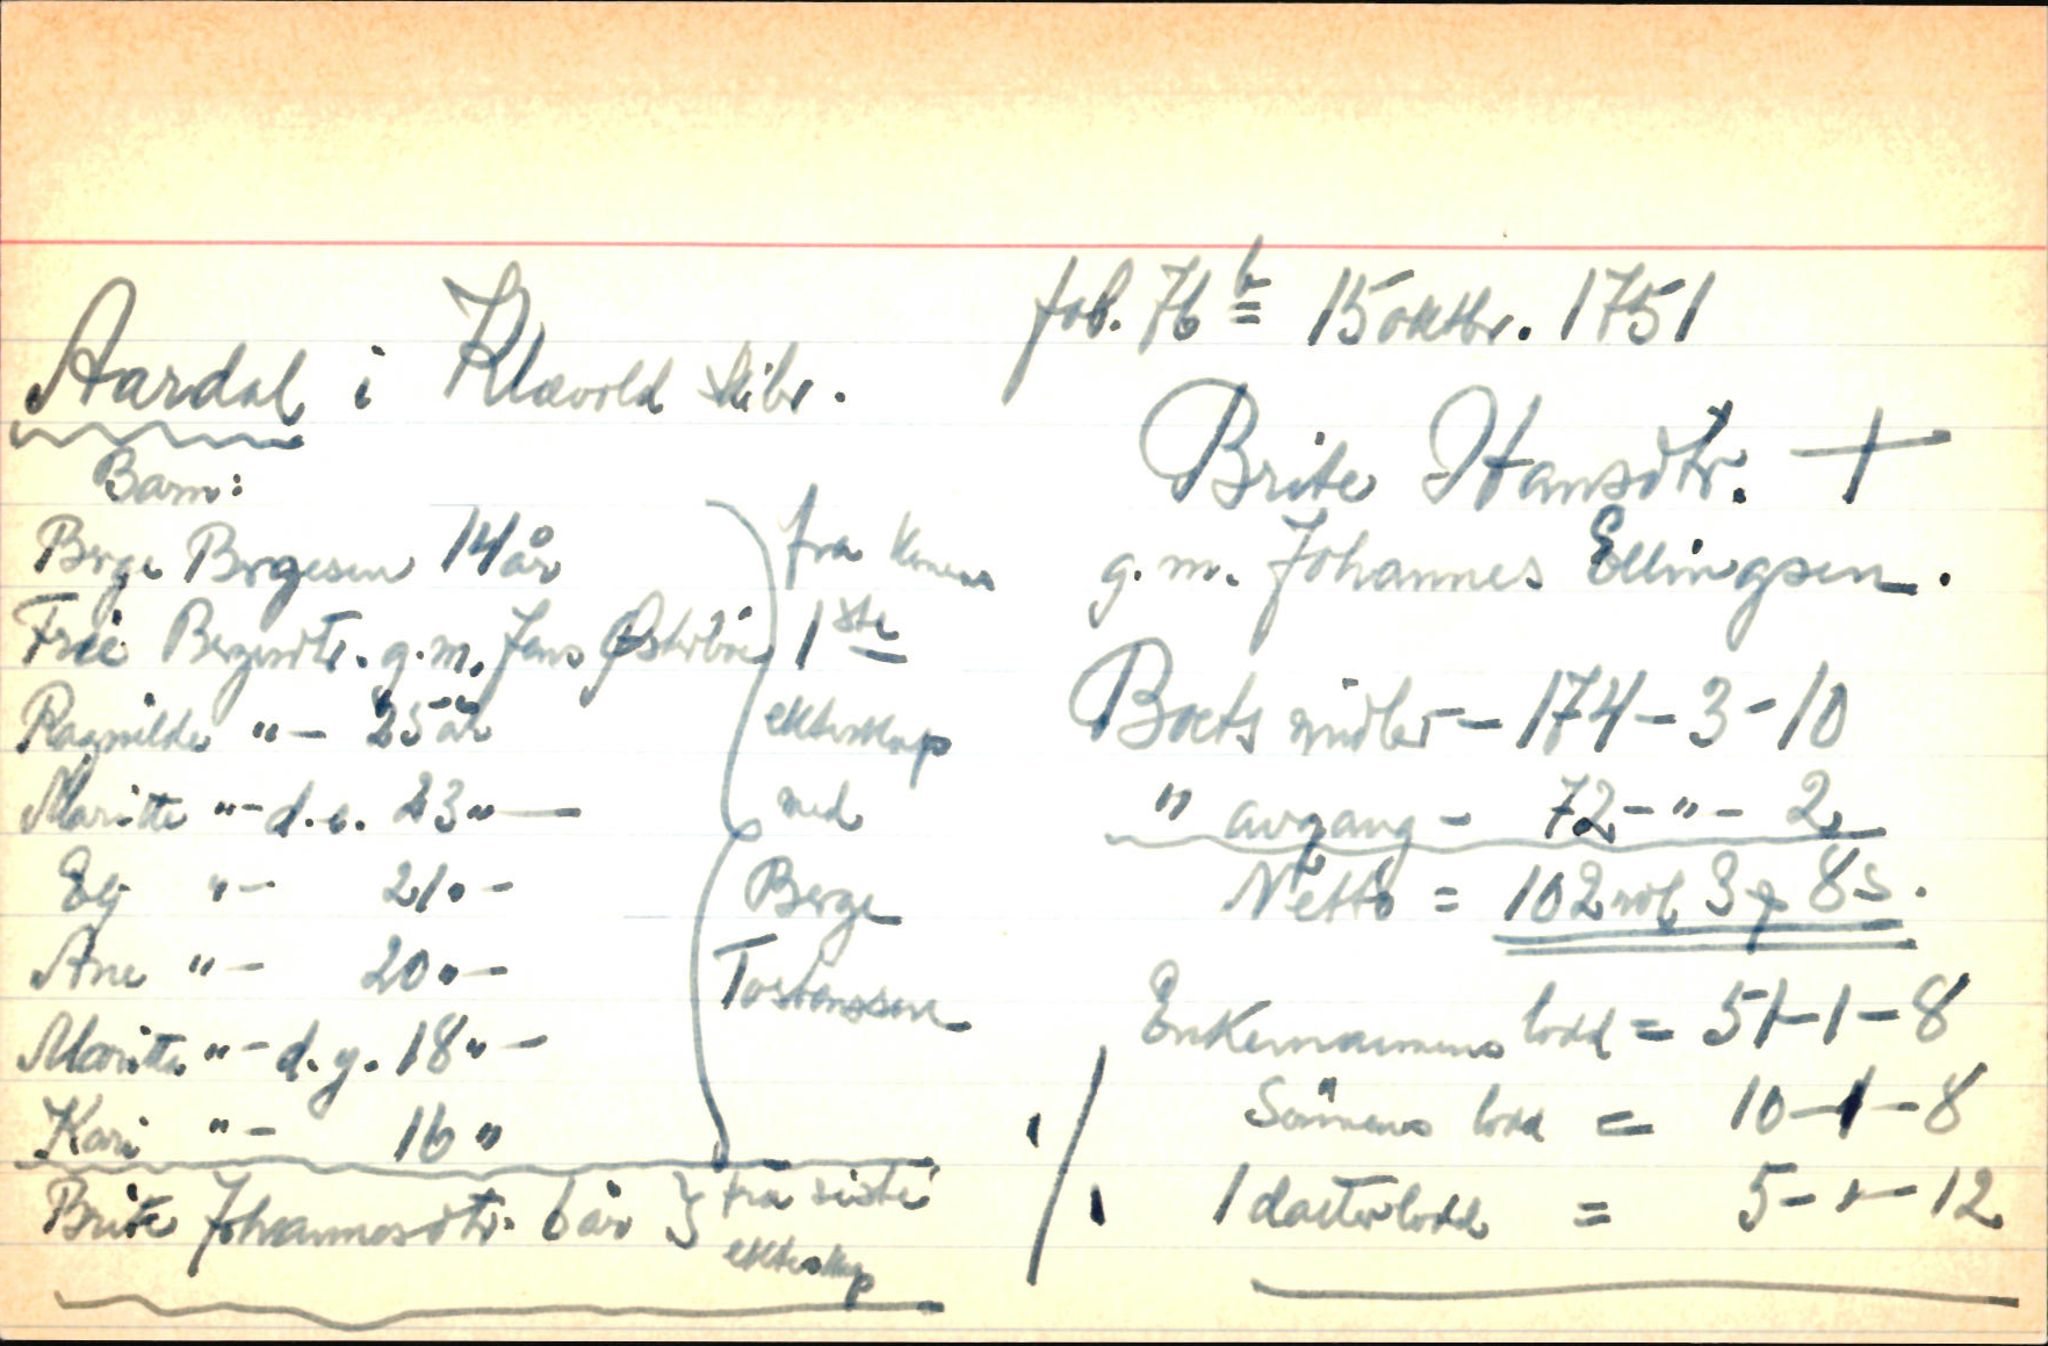 fol. 76 b 15 oktbr. 1751
Aardal i Klævold skibr.
Brite Hansdtr. +
g. m. Johannes Ellingsen.
Barn:
Berge Bergesen 14 år
Frie Bergesdtr. g. m. Jens Østerbøe
Ragnilde "- 25 år
Maritte "- d. e. 23 "-
Elj "- 21 "-
Ane "- 20 "-
Maritte "- d. y. 18 "-
Kari "- 16 "
fra konens
1ste
ekteskap
med
Berge
Torstenssen
Brite Johannesdtr. 6 år } fra siste
ekteskap
Boets midler - 174 - 3 - 10
" avgang - 72 - " - 2
Netto = 102 rdl 3 ƒ 8 s.
Enkemannens lodd = 51 - 1 - 8
Sønnens lodd = 10 - 1 - 8
1 datterlodd = 5 - " - 12